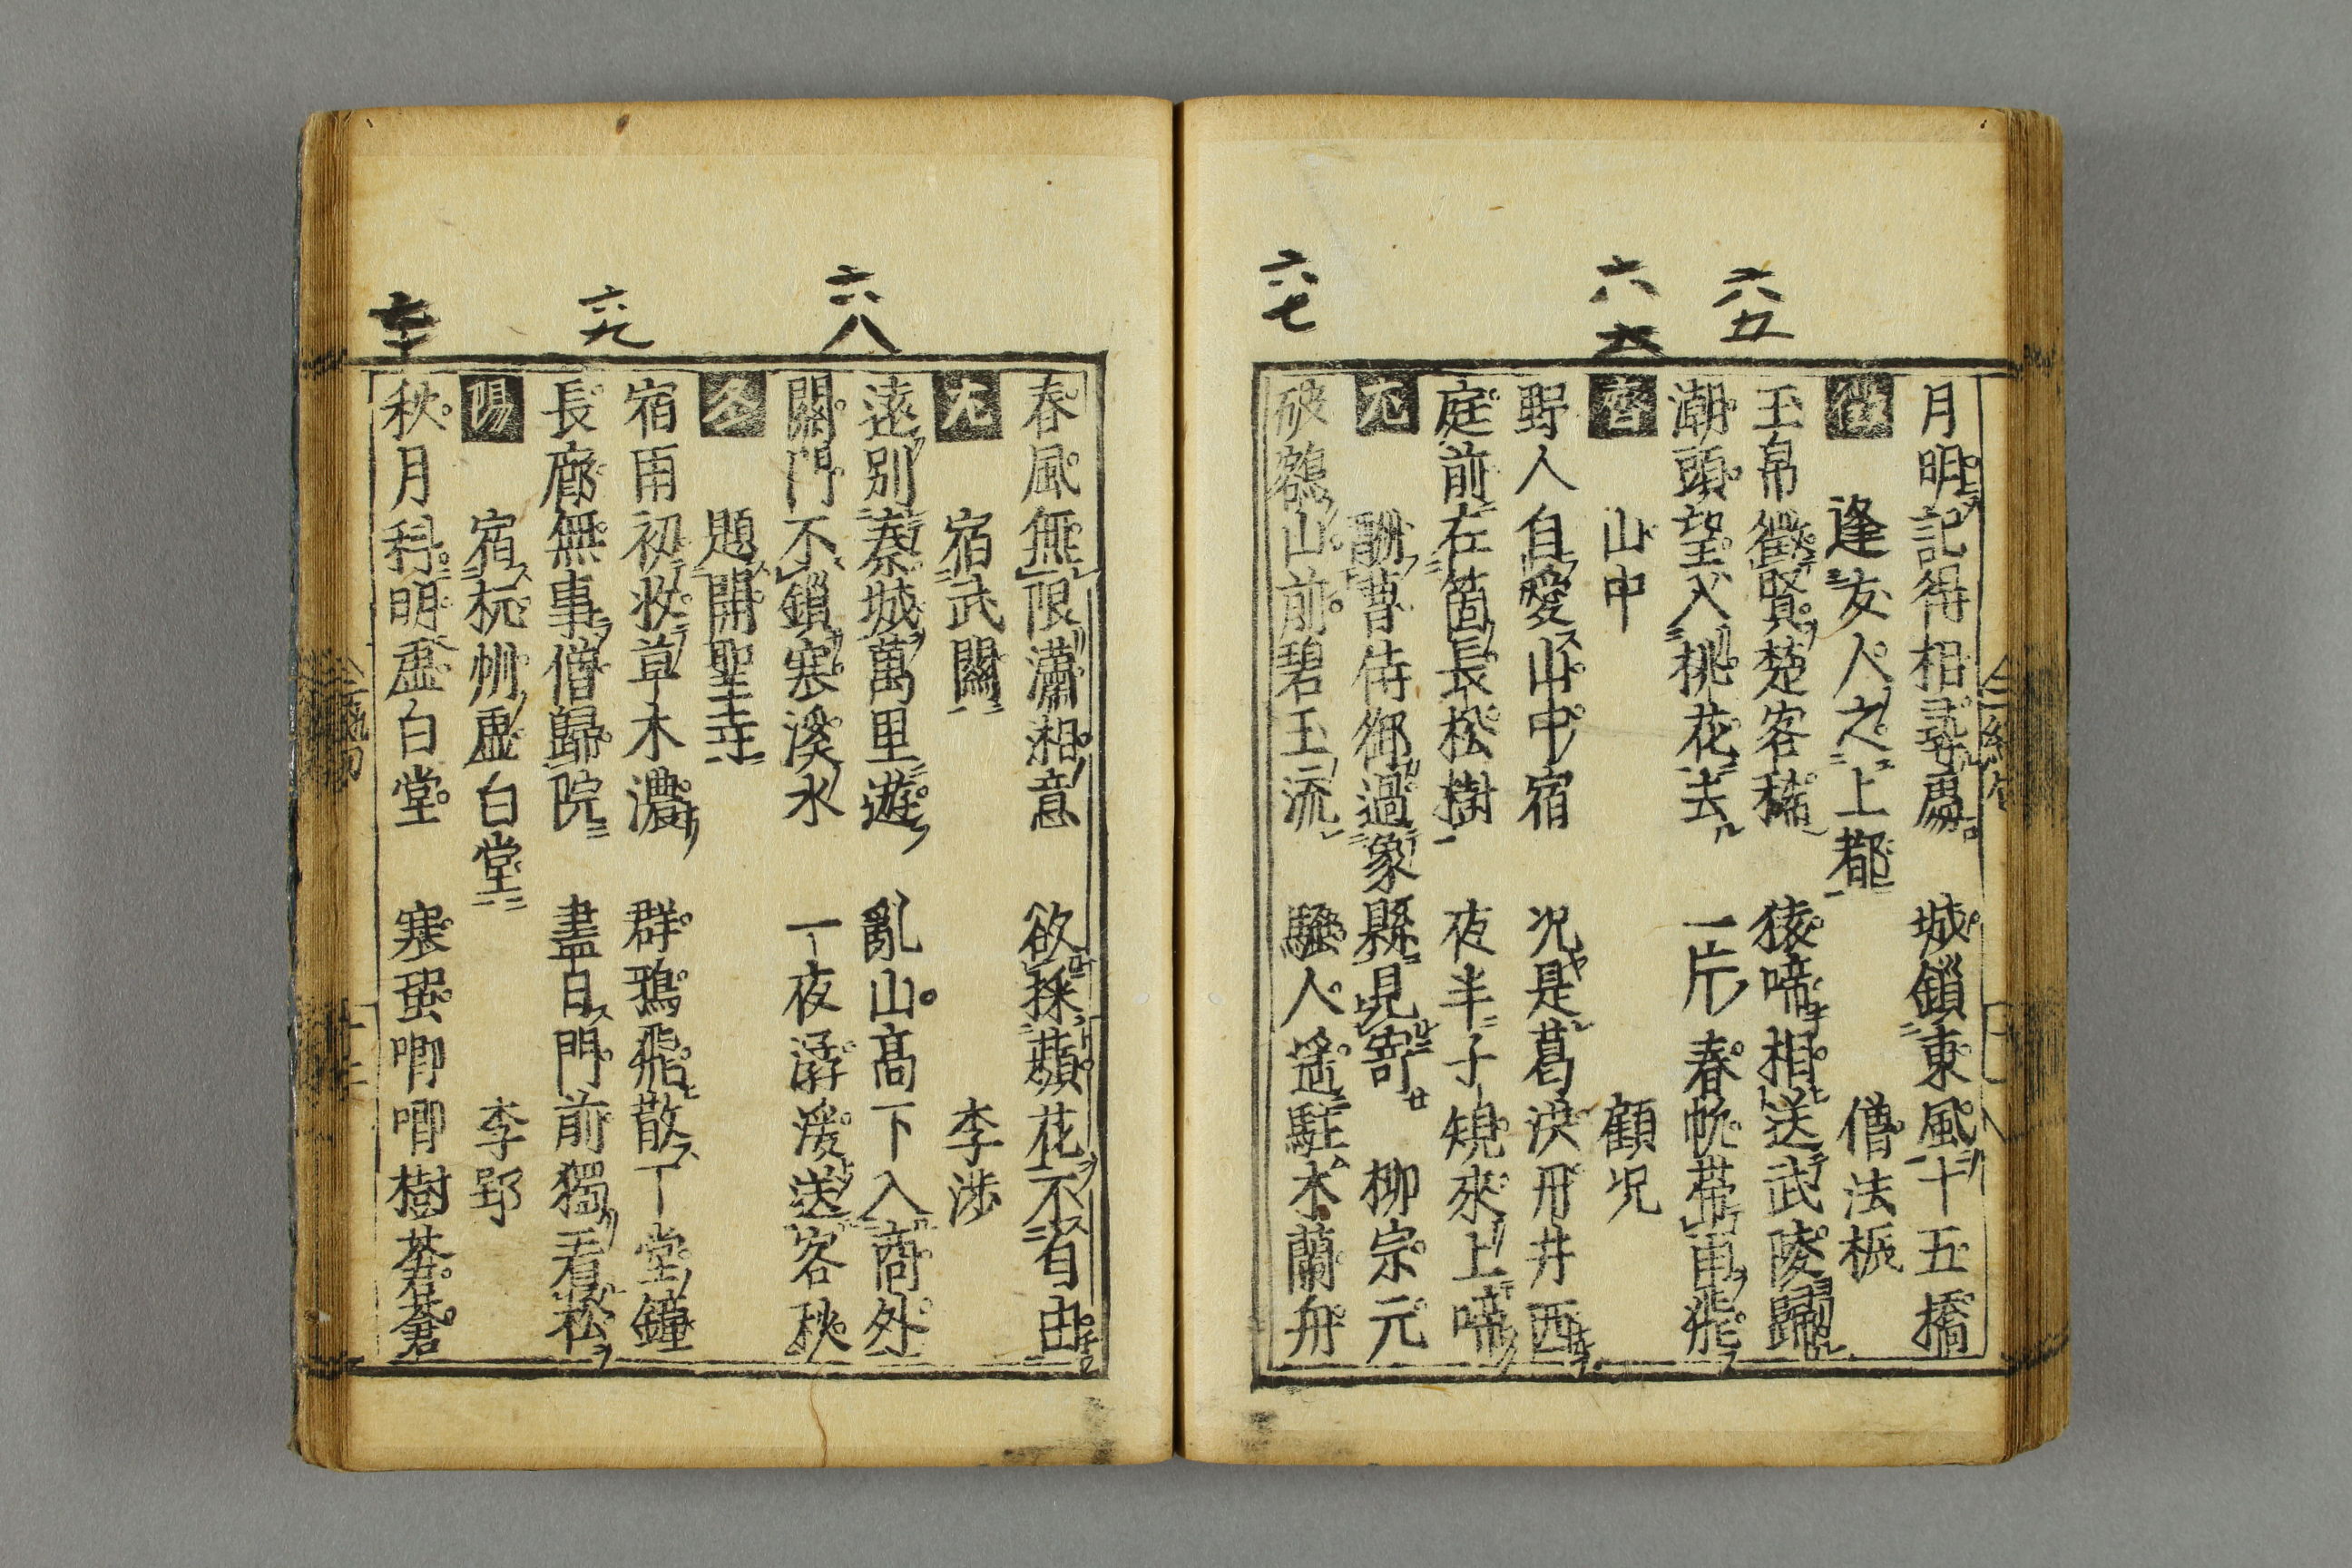 六五
六六
六七
月明記得相尋處　城鎖東風十五橋
逢友人之上都　僧法振
玉帛徵賢楚客稀　猿啼相送武陵歸
潮頭望入桃花去　一片春帆帶雨飛
齊　山中　顧况
野人自愛山中宿　况是葛洪丹井西
庭前有箇長松樹　夜半子規來上啼
尤　酬曹侍御過象縣見寄　柳宗元
破額山前碧玉流　騷人遙駐木蘭舟
六八
六九
七十
春風無限瀟湘意　欲採蘋花不自由
尤　宿武關　李涉
遠別秦城萬里遊　亂山高下入商外
關門不鎖寒溪水　一夜潺湲送客秋
冬　題開聖寺
宿雨初收草木濃　群鴉飛散下堂鐘
長廊無事僧歸院　盡日門前獨看松
陽　宿杭州虛白堂　李郢
秋月斜明虛白堂　寒蛩唧唧樹蒼蒼